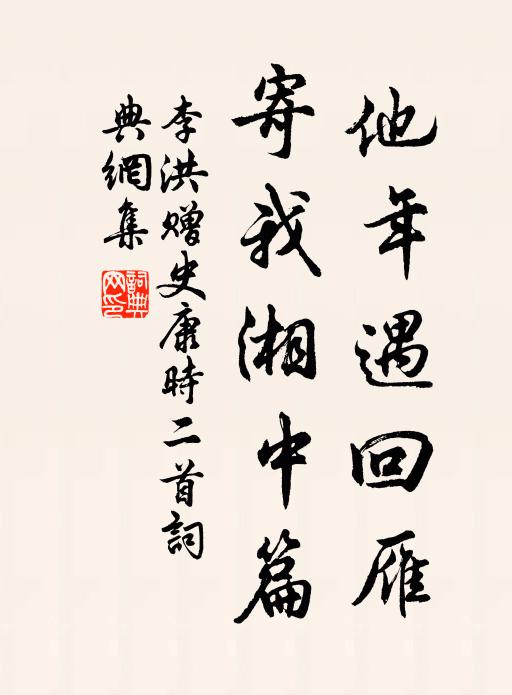 他年遇回雁
寄我湘中篇
李洪赠史康時二首詞
典網集
詞典網印